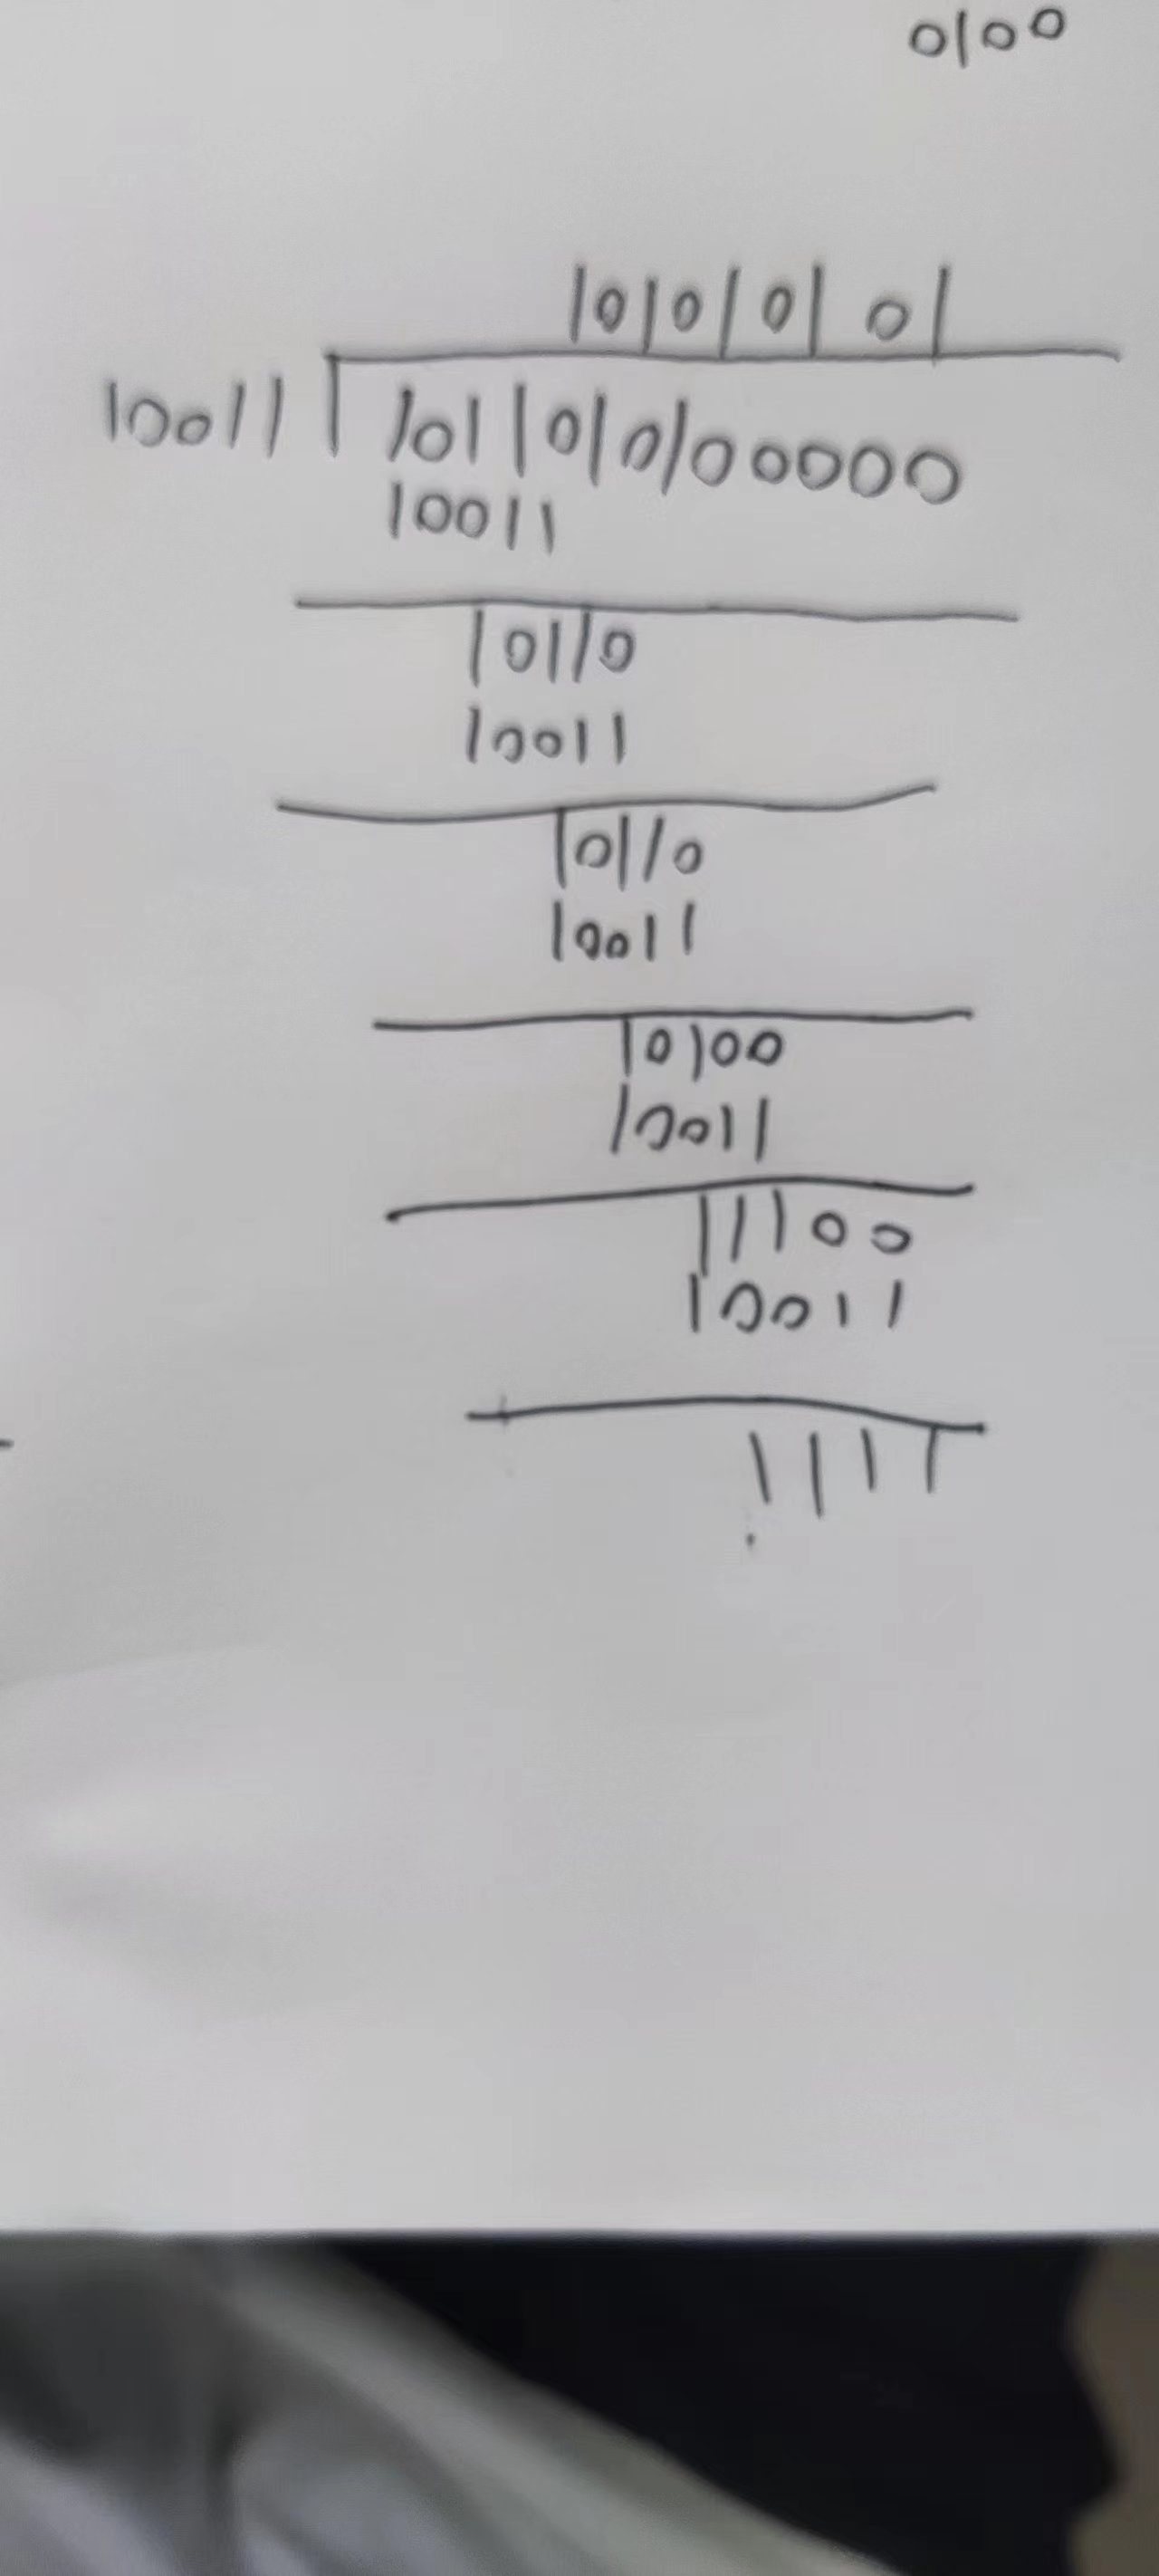 0100
101010101
10011 1011010100000
10011
10110
10011
10110
10011
10100
10011
11100
10011
1111